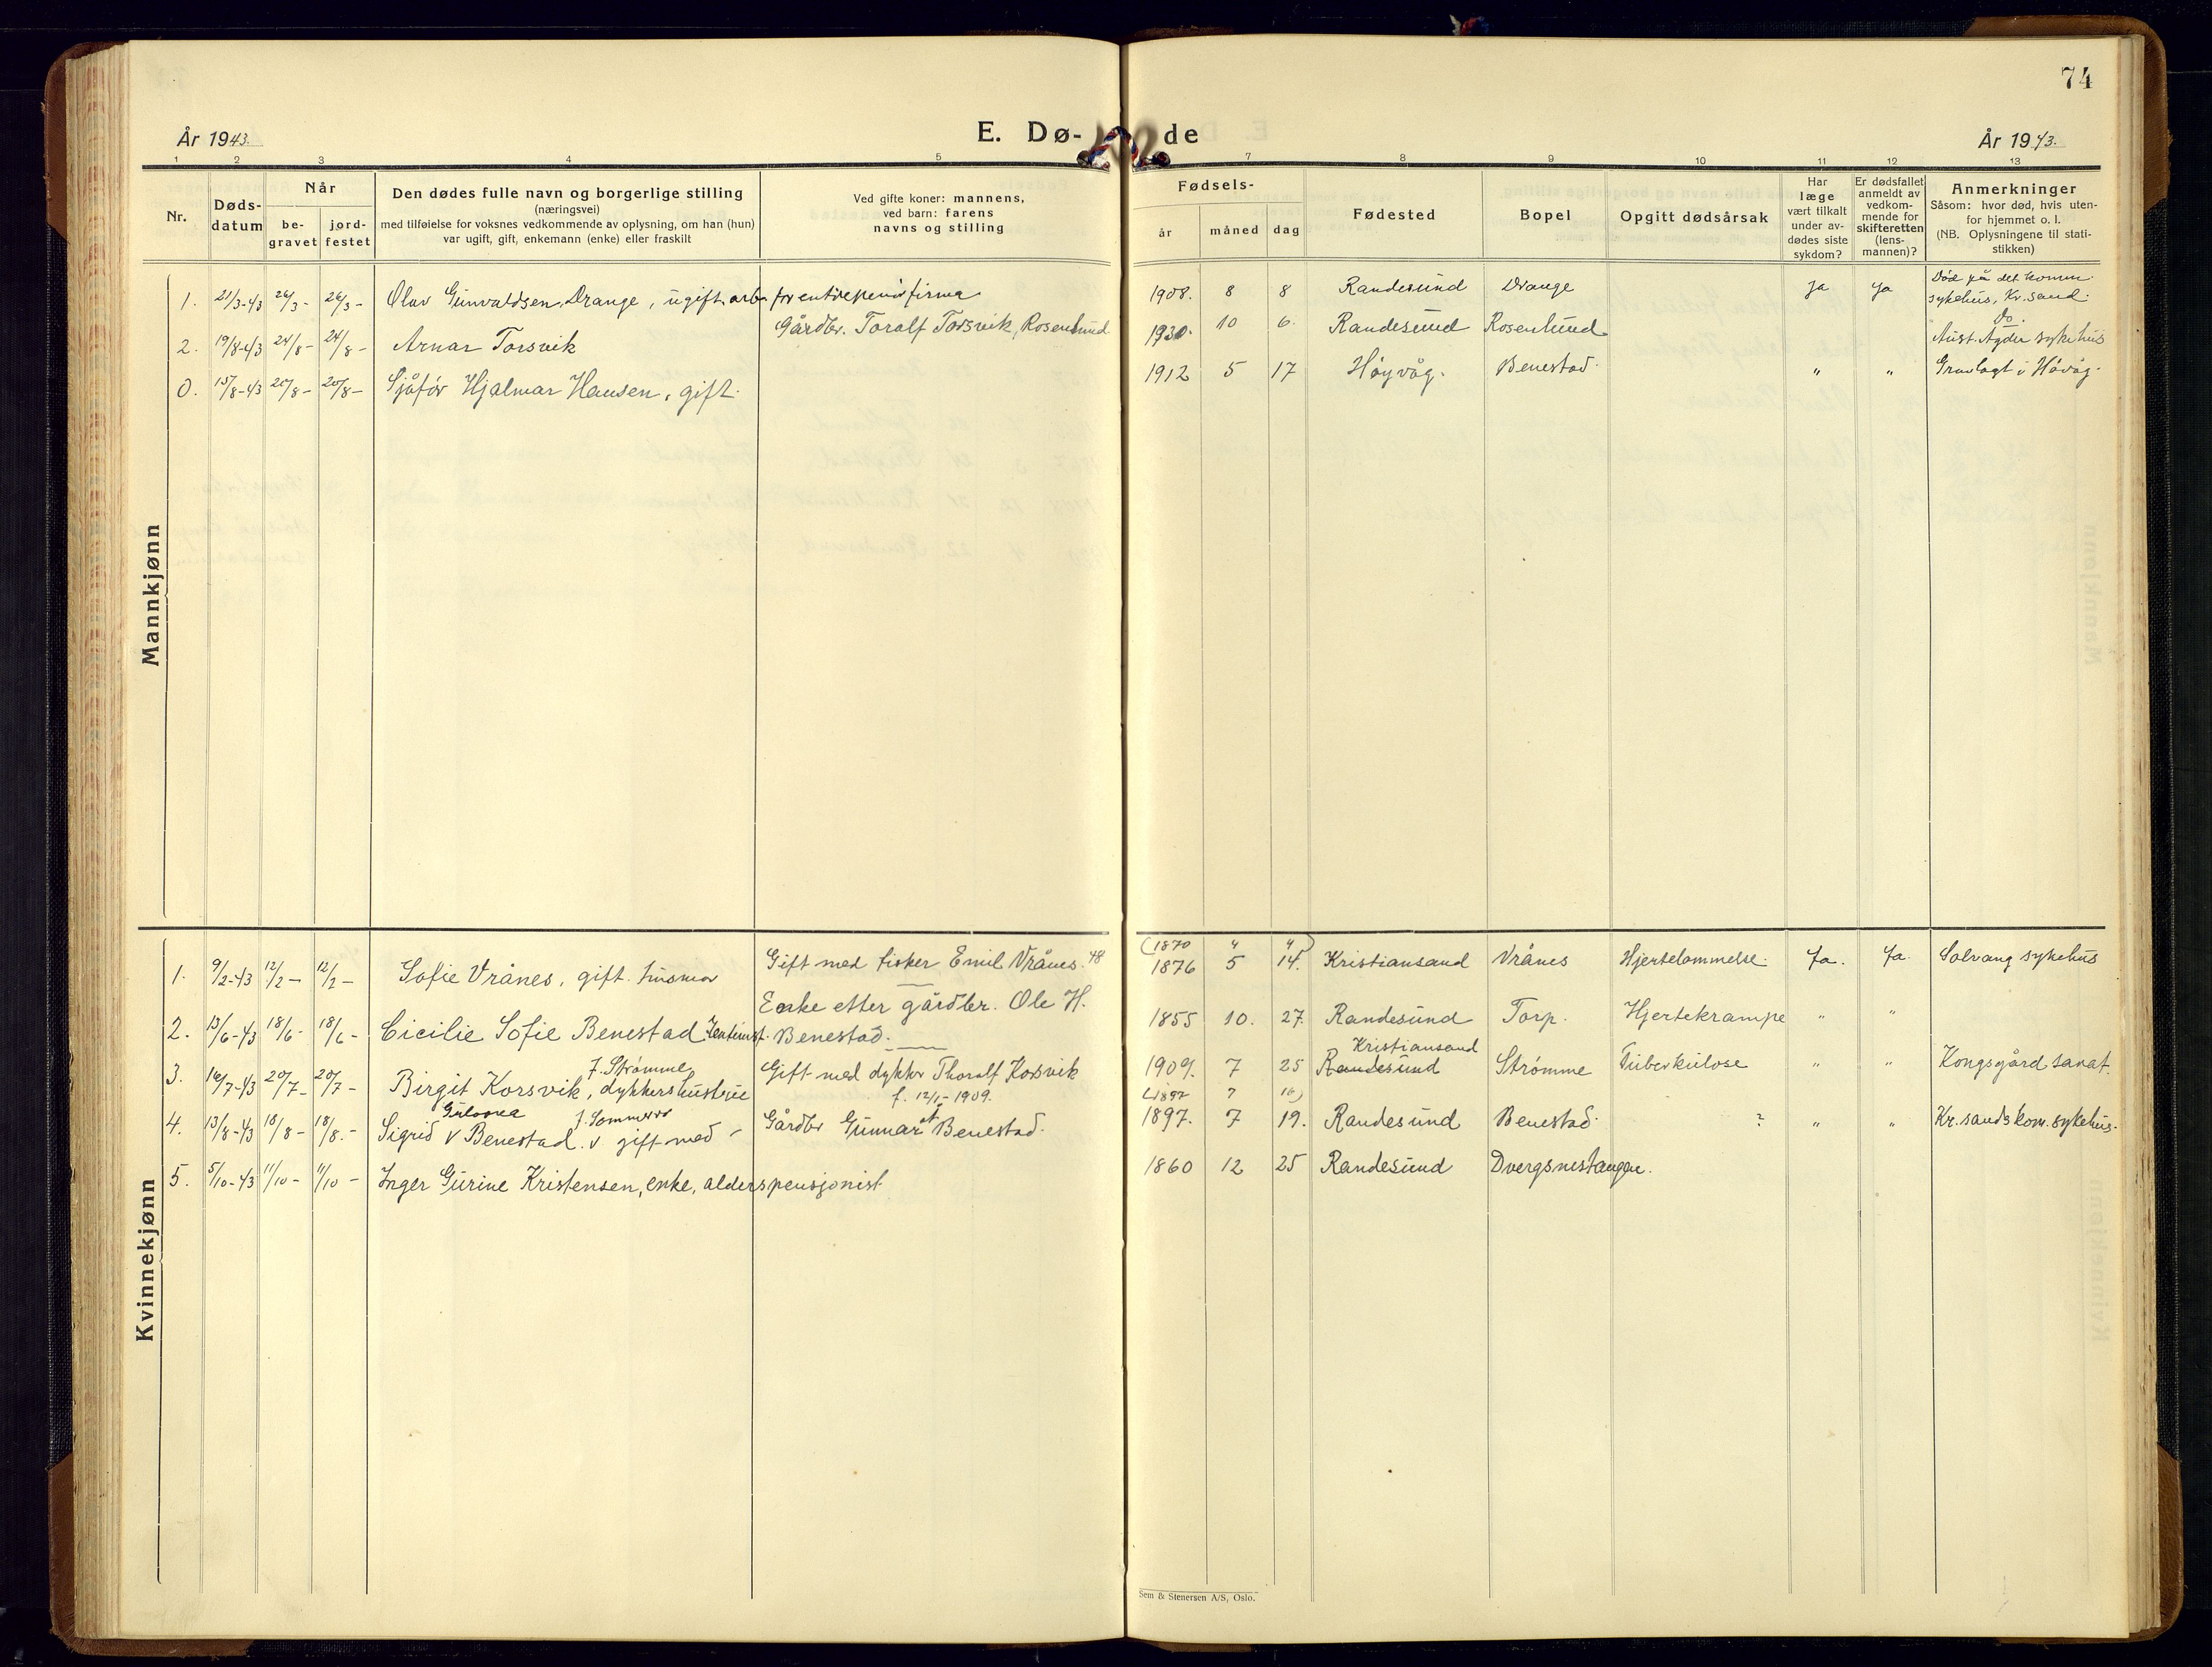 74
År 1943.
E. Dø-
de
År 1943.
1 2 3 4 5 7 8 9 10 11 12 13
Nr.
Døds-
datum
Når
be-
gravet
jord-
festet
Den dødes fulle navn og borgerlige stilling
(næringsvei)
med tilføielse for voksnes vedkommende av oplysning, om han (hun)
var ugift, gift, enkemann (enke) eller fraskilt
Ved gifte koner: mannens,
ved barn: farens
navns og stilling
Fødsels-
år måned dag
Fødested
Bopel
Opgitt dødsårsak
Har
læge
vært tilkalt
under av-
dødes siste
sykdom?
Er dødsfallet
anmeldt av
vedkom-
mende for
skifteretten
(lens-
mannen)?
Anmerkninger
Såsom: hvor død, hvis uten-
for hjemmet o. l.
(NB. Oplysningene til stati-
stikken)
Mannkjønn
1. 21/3-43 26/3- 26/3- Olav Gunvaldsen Drange, ugift arb. for entreprenørfirma 1908. 8 8 Randesund Drange ja ja
Død på det komm.
sykehus, Kr.sand.
2. 19/8-43 24/8- 24/8- Arnar Torsvik Gårdbr. Toralf Torsvik, Rosenlund 1930. 10 6. Randesund Rosenlund
do.
Aust-Agder sykehus
0. 15/8-43 20/8- 20/8- Sjåfør Hjalmar Hansen, gift. 1912 5 17 Høyvåg. Benestad. " " Gravlagt i Høvåg.
Kvinnekjønn
(1870 " ")
1. 9/2-43 12/2- 12/2- Sofie Vrånes, gift. husmor Gift med fisker Emil Vrånes. 48 1876 5 14. Kristiansand Vrånes Hjertelammelse. Ja. Ja. Solvang sykehus
Enke etter gårdbr. Ole H.
2. 13/6-43 18/6- 18/6- Cicilie Sofie Benestad Benestad. 1855 10. 27. Randesund Torp. Hjertekrampe " "
f. Strømme Kristiansand
3. 16/7-43 20/7- 20/7- Birgit Korsvik, dykkershustrue Gift med dykker Thoralf Korsvik 1909. 7 25 Randesund Strømme Tuberkulose " " Kongsgård sanat.
f. 12/1-1909.
(1897 7 16)
4. 13/8-43 18/8- 18/8.- Sigrid v Benestad. v gift med - Gårdbr Gunnar A Benestad. 1897. 7 19. Randesund Benestad. ? " " Kr.sands kom. sykehus.
5. 5/10-43 11/10- 11/10- Inger Gurine Kristensen, enke, alderspensjonist 1860 12 25 Randesund Dvergsnestangen.
Sem & Stenersen A/S, Oslo.